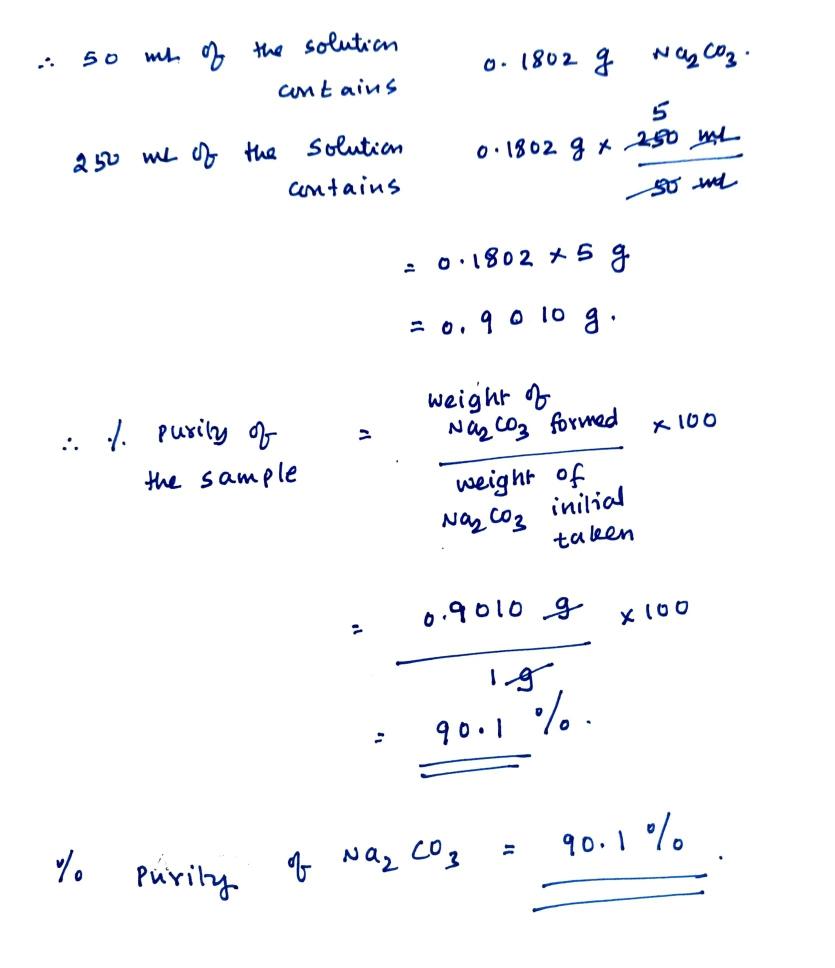 ∴ 50 mL of the solution contains 0.1802 g Na₂CO₃.
250 mL of the solution contains 0.1802 g × 250 mL / 50 mL
5
= 0.1802 × 5 g
= 0.9010 g.
∴ % purity of the sample = weight of Na₂CO₃ formed / weight of Na₂CO₃ initial taken × 100
= 0.9010 g / 1 g × 100
= 90.1 %.
% Purity of Na₂CO₃ = 90.1 %.